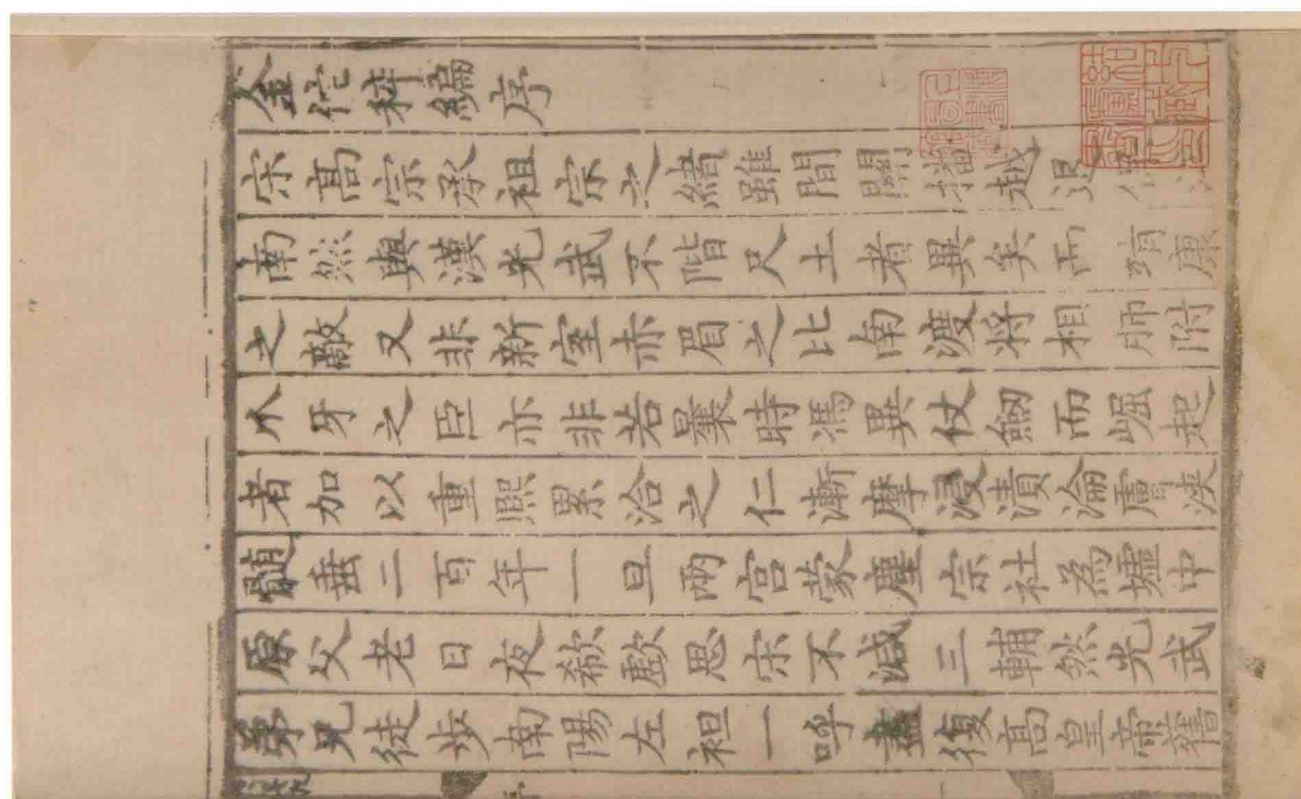 金佗稡編序
宋高宗承祖宗之緒雖間關播越退
南然與漢光武不階尺土者異矣而靖康
之敵又非新室赤眉之比南渡將相肺附
爪牙之臣亦非若曩時馮異仗劔而崛起
者加以重熙累洽之仁漸摩浸漬淪膚浹
髓垂二百年一旦兩宮蒙塵宗社為墟中
原父老日夜欷歔思宋不減三輔然光武
弟兄徒步南陽左袒一呼盡復高皇帝舊